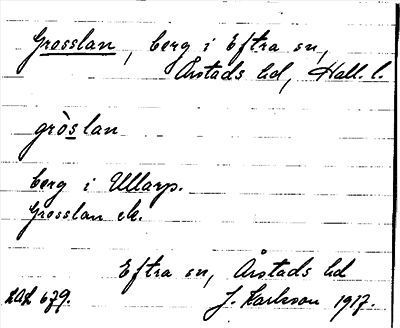 Grosslan, berg i Eftra sn,
Årstads hd, Hall. l.
gròslan
berg i Ullarp.
Grosslan ek.
Eftra sn, Årstads hd
679. J. Karlsson 1917.